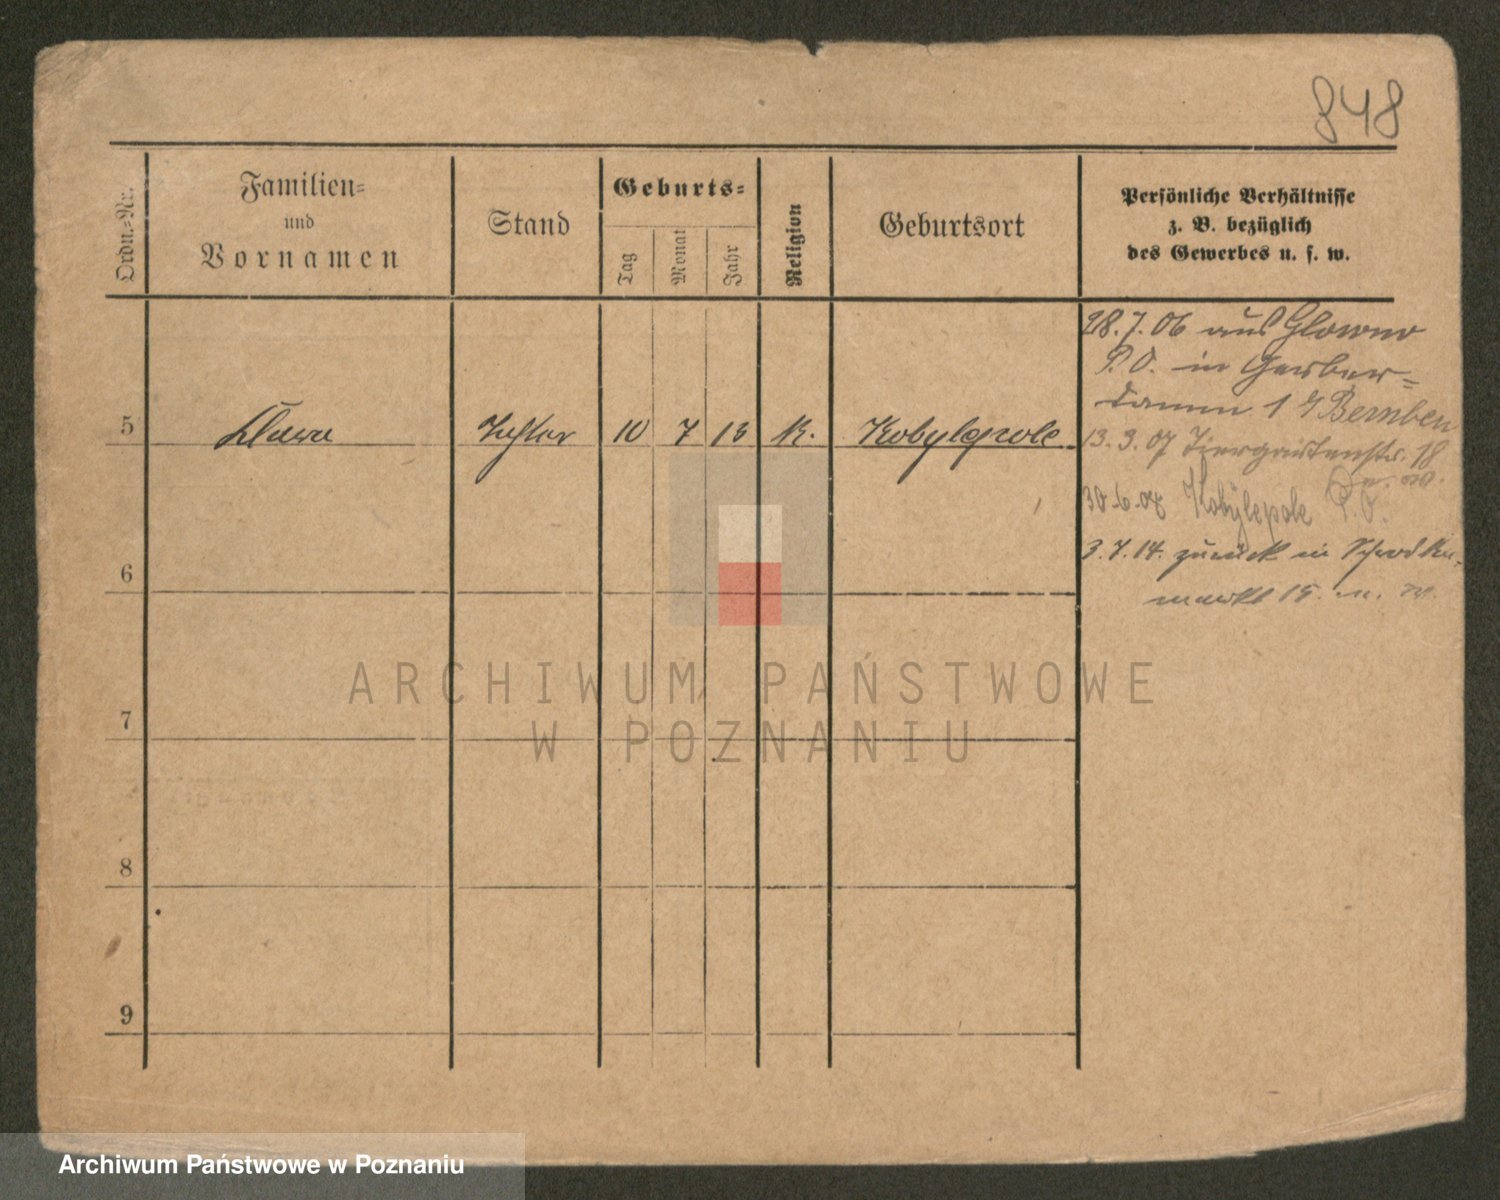 848
Ordn.-Nr.
Familien-
und
Vornamen
Stand
Geburts-
Tag
Monat
Jahr
Religion
Geburtsort
Persönliche Verhältnisse
z. B. bezüglich
des Gewerbes u. s. w.
5 Tochter 10 7 13 K. Kobylepole
6
7
8
9
28.7.06 aus Glowno
P.O. in Gerber-
damm 1
13.3.07 Tiergartenstr. 18
Kobylepole P.O.
3.7.14. zurück in
markt 15.
ARCHIWUM PAŃSTWOWE
W POZNANIU
Archiwum Państwowe w Poznaniu